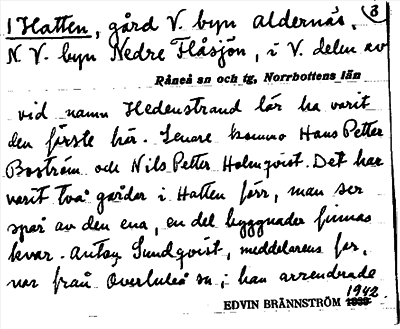 1 Hatten, gård V. byn Aldernäs, 3
N. V. byn Nedre Flåsjön, i V. delen av
Råneå sn och tg, Norrbottens län
vid namn Hedenstrand lär ha varit
den förste här. Senare kommo Hans Petter
Boström och Nils Petter Holmqvist. Det har
varit två gårdar i Hatten förr, man ser
spår av den ena, en del byggnader finnas
kvar. Anton Sundqvist, meddelarens far,
var från Överluleå sn; han arrenderade
EDVIN BRÄNNSTRÖM 1942.